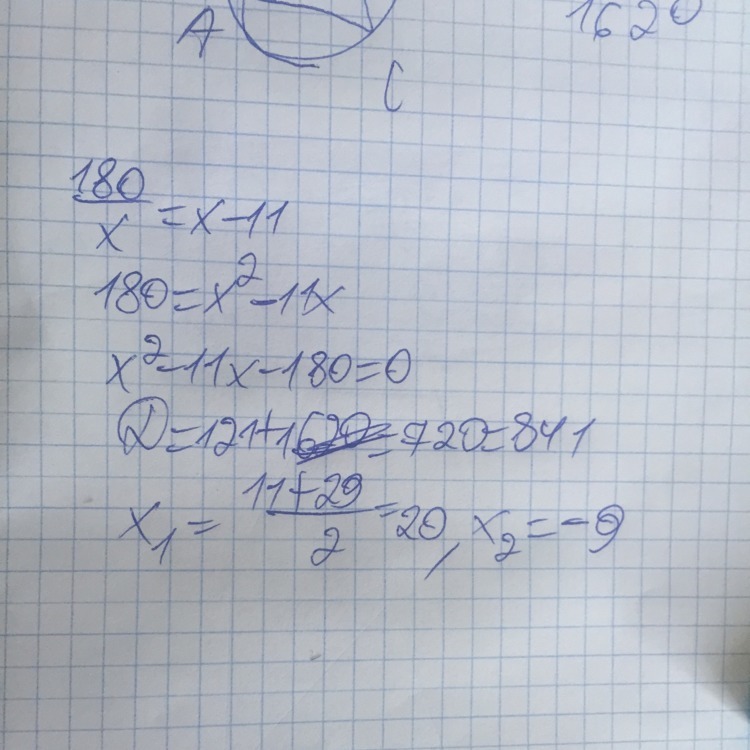 A
C
1620
180/x = x - 11
180 = x² - 11x
x² - 11x - 180 = 0
D = 121 + 1620 = 720 = 841
x₁ = (11+29)/2 = 20, x₂ = -9